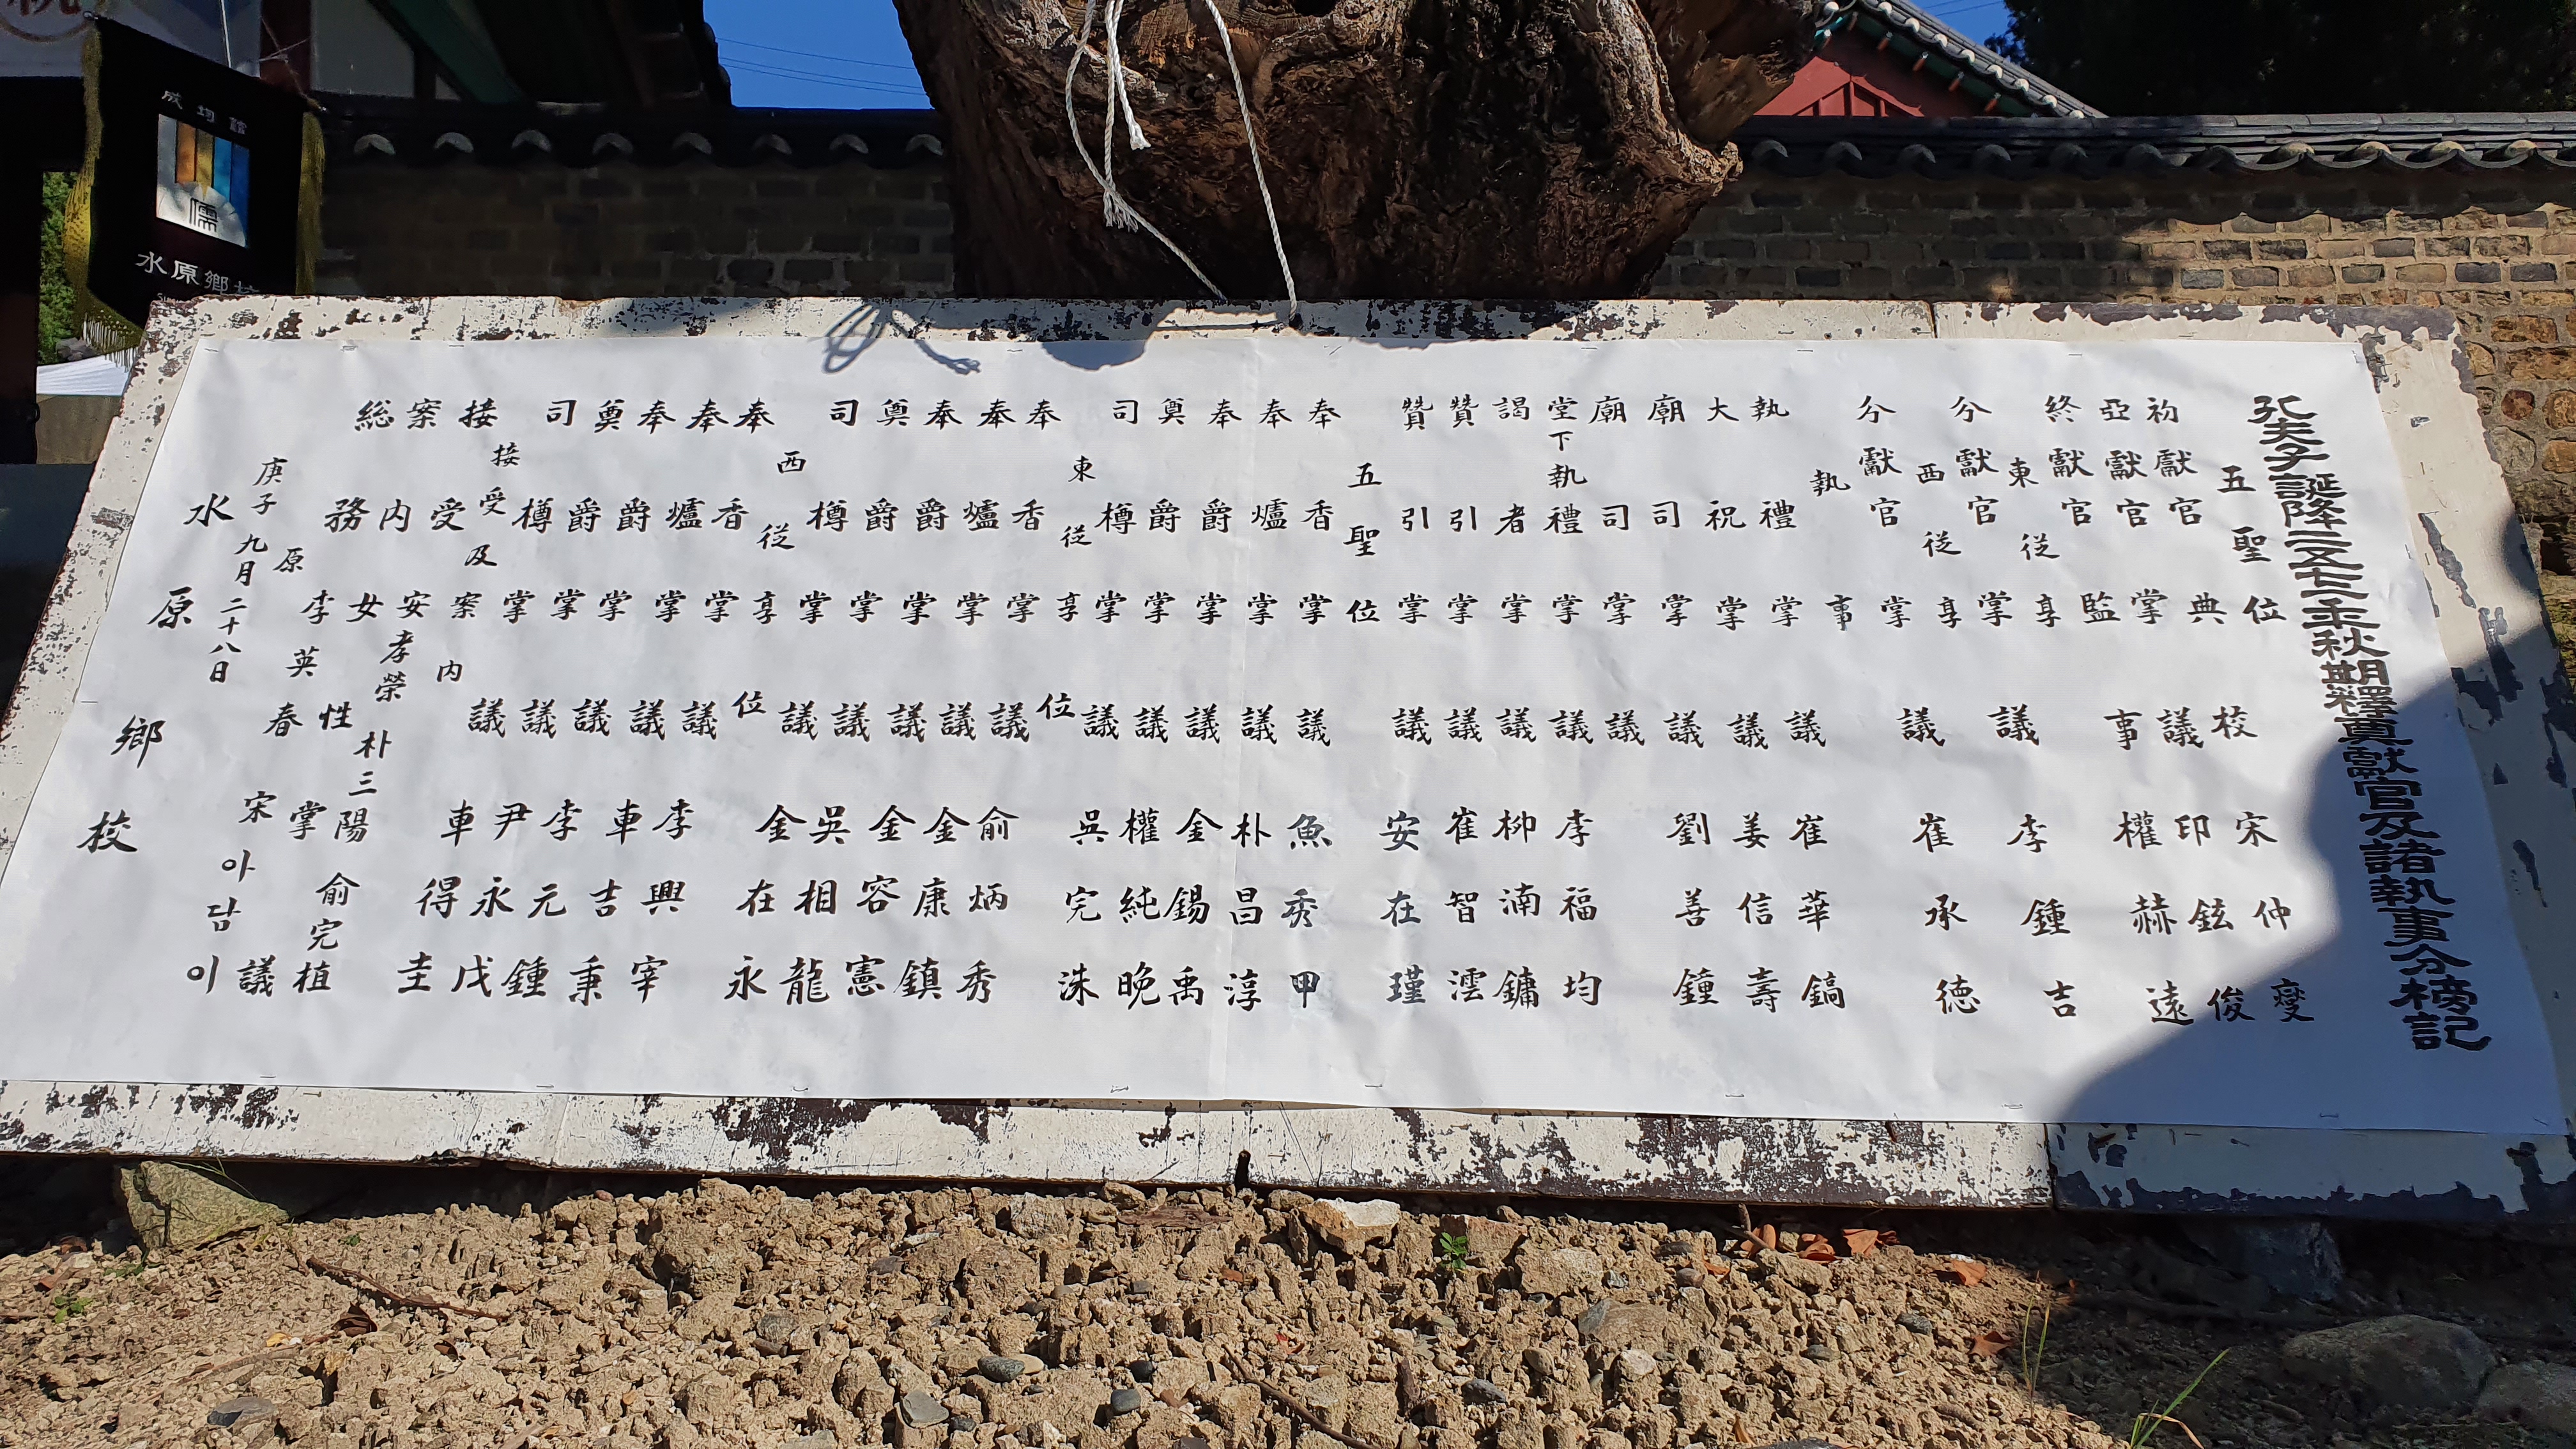 孔夫子誕降二五七一年秋期釋奠獻官及諸執事分榜記
五聖位
初獻官 典校 宋仲燮
亞獻官 掌議 印鉉俊
終獻官 監事 權赫遠
東從享
分獻官 掌議 李鍾吉
西從享
分獻官 掌議 崔承德
執事
執禮 掌議 崔華鎬
大祝 掌議 姜信壽
廟司 掌議 劉善鐘
廟司 掌議
堂下執禮 掌議 李福均
謁者 掌議 柳湳鏞
贊引 掌議 崔智澐
贊引 掌議 安在瑾
五聖位
奉香 掌議 魚秀甲
奉爐 掌議 朴昌淳
奉爵 掌議 金錫禹
奠爵 掌議 權純晩
司樽 掌議 吳完洙
東從享位
奉香 掌議 俞炳秀
奉爐 掌議 金康鎮
奉爵 掌議 金容憲
奠爵 掌議 吳相龍
司樽 掌議 金在永
西從享位
奉香 掌議 李興宰
奉爐 掌議 車吉秉
奉爵 掌議 李元鍾
奠爵 掌議 尹永戊
司樽 掌議 車得圭
接受及案内
接受 安孝榮 朴三陽 俞完植
案内 女性掌議
総務 李英春 宋아담이
原
庚子九月二十八日
水原鄉校
成均館
儒
水原鄉校